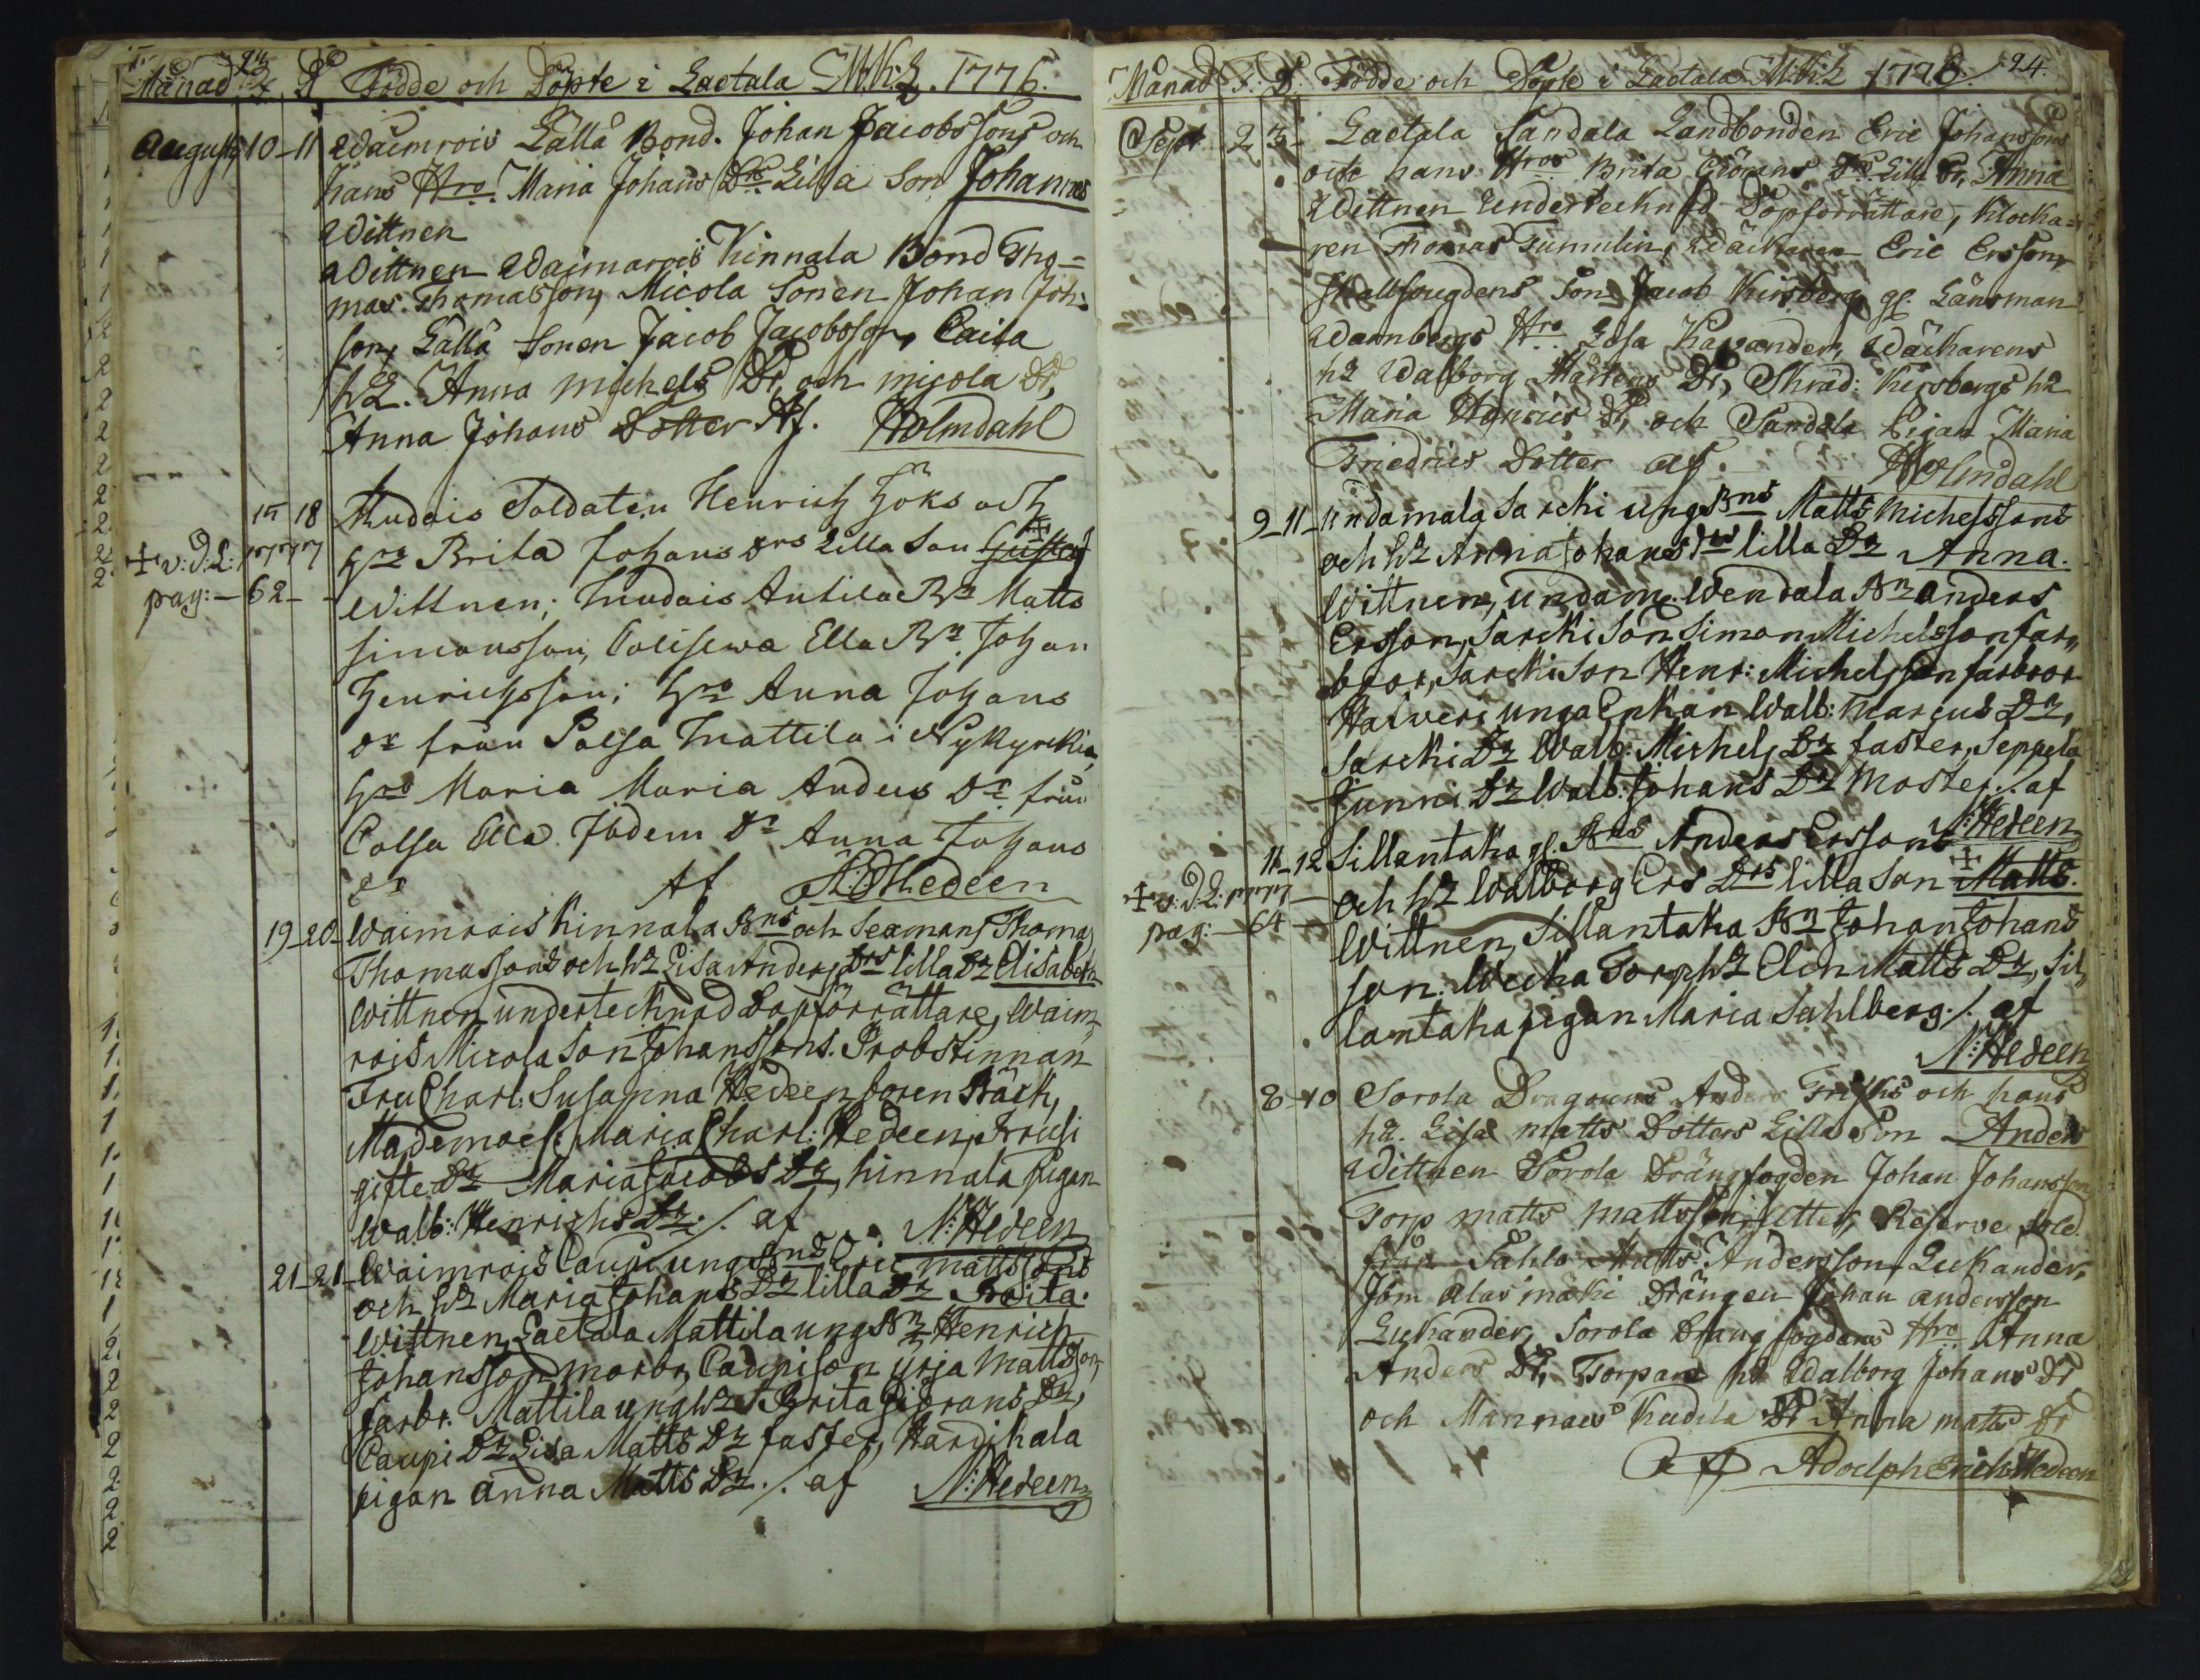 Månad F. D. Födde och Döpte i Laetala M.K.L. 1776.
August, 10-11 Waimrois Lällä Bond. Johan Jacobssons och
hans Hro. Maria Johans Drs. Lilla Son Johannes
Wittnen
Wittnen Waimarois Kinnala Bond Tho=
mas Thomasson, Micola Sonen Johan Joh:
son, Lällä Sonen Jacob Jacobsson, Caila
h2. Anna Michels Dr, och micola Dr,
Anna Johans Dotter Af. Holmdahl
15 18 Kudais Soldaten Henrich Höks och
Hro Brita Johans Drs Lilla Son Gustaf
✝ v: D: L: 1777
pag: 62 Wittnen; Kudais Antila Bn Matts
Simonsson, Ella Bn. Johan
Henrichsson; Hro Anna Johans
Dr från Palsa Mattila i Nykyrckia,
Hro Maria Maria Anders Dr från
Calsa Ella Ibdem Dr Anna Johans
Dr Af N:Hedeen
19-20 Waimrois Kinnala Bns och Seamans Thomas
Thomassons och h2 Lisa Anders Drs lilla Dr Elisabeth
Wittnen undertecknad Dopförrättare, Waim,
rois Micola Son Johanssons. Probstinnan
Fru Charl: Susanna Hedeen boren Bäck,
Mademoes: Maria Charl: Hedeen, Krusi
gifte Dr Maria Jacobs Dr, hinnala Pigan
Walb: Henrichs Dr ./. af N:Hedeen
21-21 Waimrois Caupi ung Bns Eric matts Sons
och h2 Maria Johans Dr lilla Dr Brita.
Wittnen, Laetala Mattila ung Bn Henrich
Johansson morbr, Caupi Son Yrja Mattsson,
farbr. Mattila ung h2 Brita Giörans Dr,
Caupi Dr Lisa Matts Dr faster, Harjihala
pigan Anna Matts Dr ./. af N:Hedeen
Månad F. D. Födde och Döpte i Laetala M.K.L. 1776. 24.
Sept 2 3 Laetala Sandala Landbonden Eric Johanssons
och hans Hros Brita Giörans Drs. Lilla Dr, Anna
Wittnen Undertecknad Döpforrättare, Klocka=
ren Thomas Tumulin, Wäckaren Eric Ersson,
Skallfougdens Son Jacob Kirsberg, gl. Länsman
Warnbergs Hro. Lisa Kavander, Wäckarens
h2 Walborg Mårtens Dr, Skräd: Kirsbergs h2
Maria Henrics Dr, och Sandala Pigan Maria
Friedrics Dotter af. Holmdahl
9-11 Undamala Sarcki ung Bns Matts Michelssons
och h2 Anna Johans Drs lilla Dr Anna.
Wittnen, undam. Wendala Bn Anders
Ersson, Sarcki Son Simon Michelsson far,
broor, Sarcki Son Henr: Michelsson farbror
Halveri unga Enkan Walb: Marcus Dr,
Sarcki Dr Walb: Michels Dr faster, Seppelä
Junni Dr Walb: Johans Dr Moster ./. af
N:Hedeen
11-12 Sillantaka gl. Bns Anders Erssons
och h2 Walborg Ers Drs lilla Son Matts.
✝ v: D: L: 1777
pag: 64 Wittnen, Sillantaka Bn Johan Johans
son. Wecka Torp h2 Elin Matts Dr, Sil,
lantaka pigan Maria Sahlberg ./. af
N:Hedeen
8-10 Sorola Dragouns Anders Frisks och hans
h2. Lisa matts Dotters Lilla Son Anders
Wittnen Sorola Drängfogden Johan Johansson
Torp matts mattsson, Reserve Sold.
från Sahlo Matts Andersson Lukander,
Ibm Alas mäki Drängen Johan andersson
Lukander, Sorola Dräng fogdens Hro Anna
Anders Dr, Torpare h2 Walborg Johans Dr
och Mannaes Kudila Dr Anna matts Dr
Af Adolph Erich Hedeen